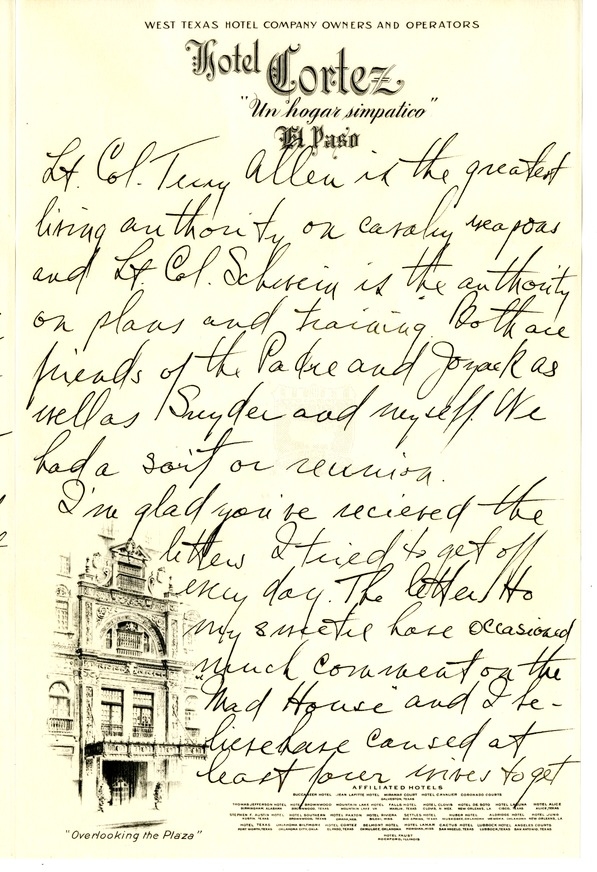 WEST TEXAS HOTEL COMPANY OWNERS AND OPERATORS
Hotel Cortez
"Un hogar simpatico"
El Paso
Lt. Col. Terry Allen is the greatest
living authority on cavalry weapons
and Lt. Col. Schwein is the authority
on plans and training. Both are
friends of the Padre and as
well as Snyder and myself. We
had a sort or reunion.
I'm glad you've recieved the
letters I tried to get off
every day. The letters to
my sweetie have occasioned
much comment on the
"Mad House" and I be-
lieve have caused at
least four wives to get
"Overlooking the Plaza"
AFFILIATED HOTELS